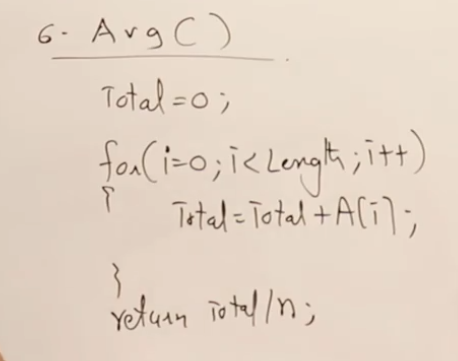 6. Avg()
Total=0;
for(i=0;i<Length;i++)
{
Total=Total+A[i];
}
return Total/n;